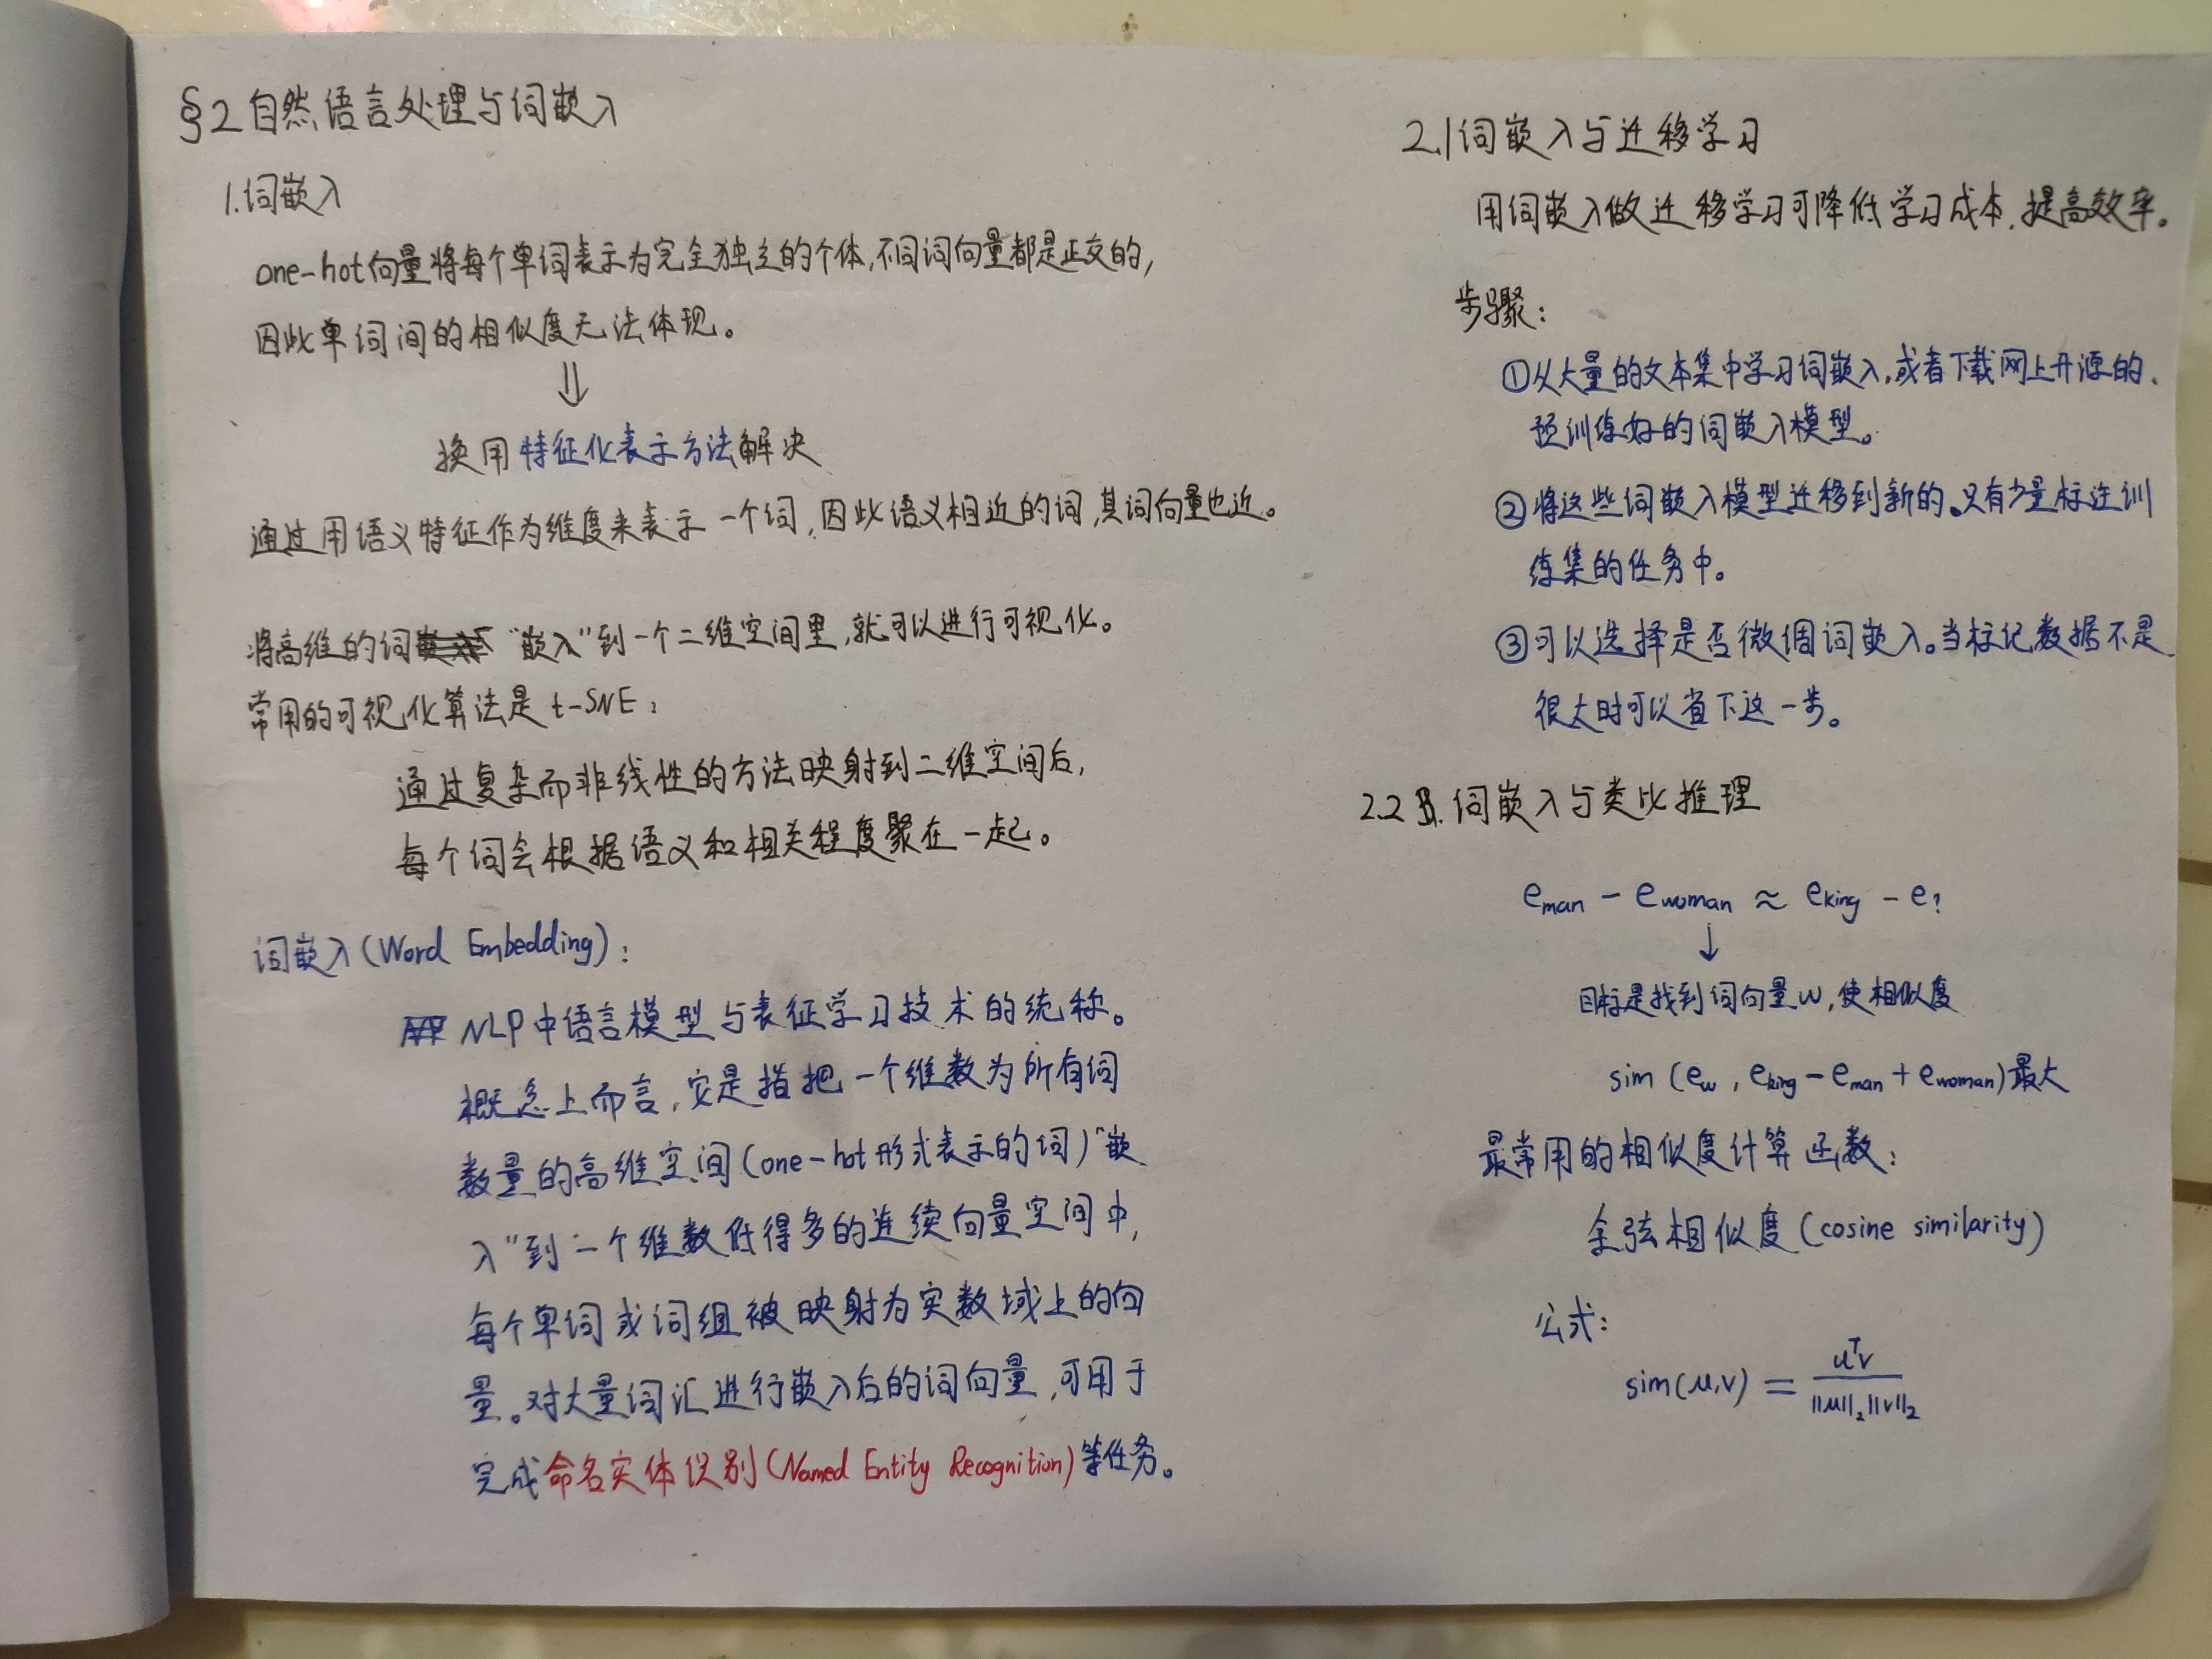 §2 自然语言处理与词嵌入
1.词嵌入
one-hot向量将每个单词表示为完全独立的个体,不同词向量都是正交的,
因此单词间的相似度无法体现。
⇓
换用特征化表示方法解决
通过用语义特征作为维度来表示一个词,因此语义相近的词,其词向量也近。
将高维的词“嵌入”到一个二维空间里,就可以进行可视化。
常用的可视化算法是 t-SNE:
通过复杂而非线性的方法映射到二维空间后,
每个词会根据语义和相关程度聚在一起。
词嵌入(Word Embedding):
NLP中语言模型与表征学习技术的统称。
概念上而言,它是指把一个维数为所有词
数量的高维空间(one-hot形式表示的词)“嵌
入”到一个维数低得多的连续向量空间中,
每个单词或词组被映射为实数域上的向
量。对大量词汇进行嵌入后的词向量,可用于
完成命名实体识别(Named Entity Recognition)等任务。
2.1词嵌入与迁移学习
用词嵌入做迁移学习可降低学习成本,提高效率。
步骤:
①从大量的文本集中学习词嵌入,或者下载网上开源的、
预训练好的词嵌入模型。
②将这些词嵌入模型迁移到新的、只有少量标注训
练集的任务中。
③可以选择是否微调词嵌入。当标记数据不是
很大时可以省下这一步。
2.2 词嵌入与类比推理
e_man − e_woman ≈ e_king − e_?
↓
目标是找到词向量w,使相似度
sim (e_w , e_king − e_man + e_woman)最大
最常用的相似度计算函数:
余弦相似度(cosine similarity)
公式:
sim(u,v) = u^T v / ||u||_2 ||v||_2